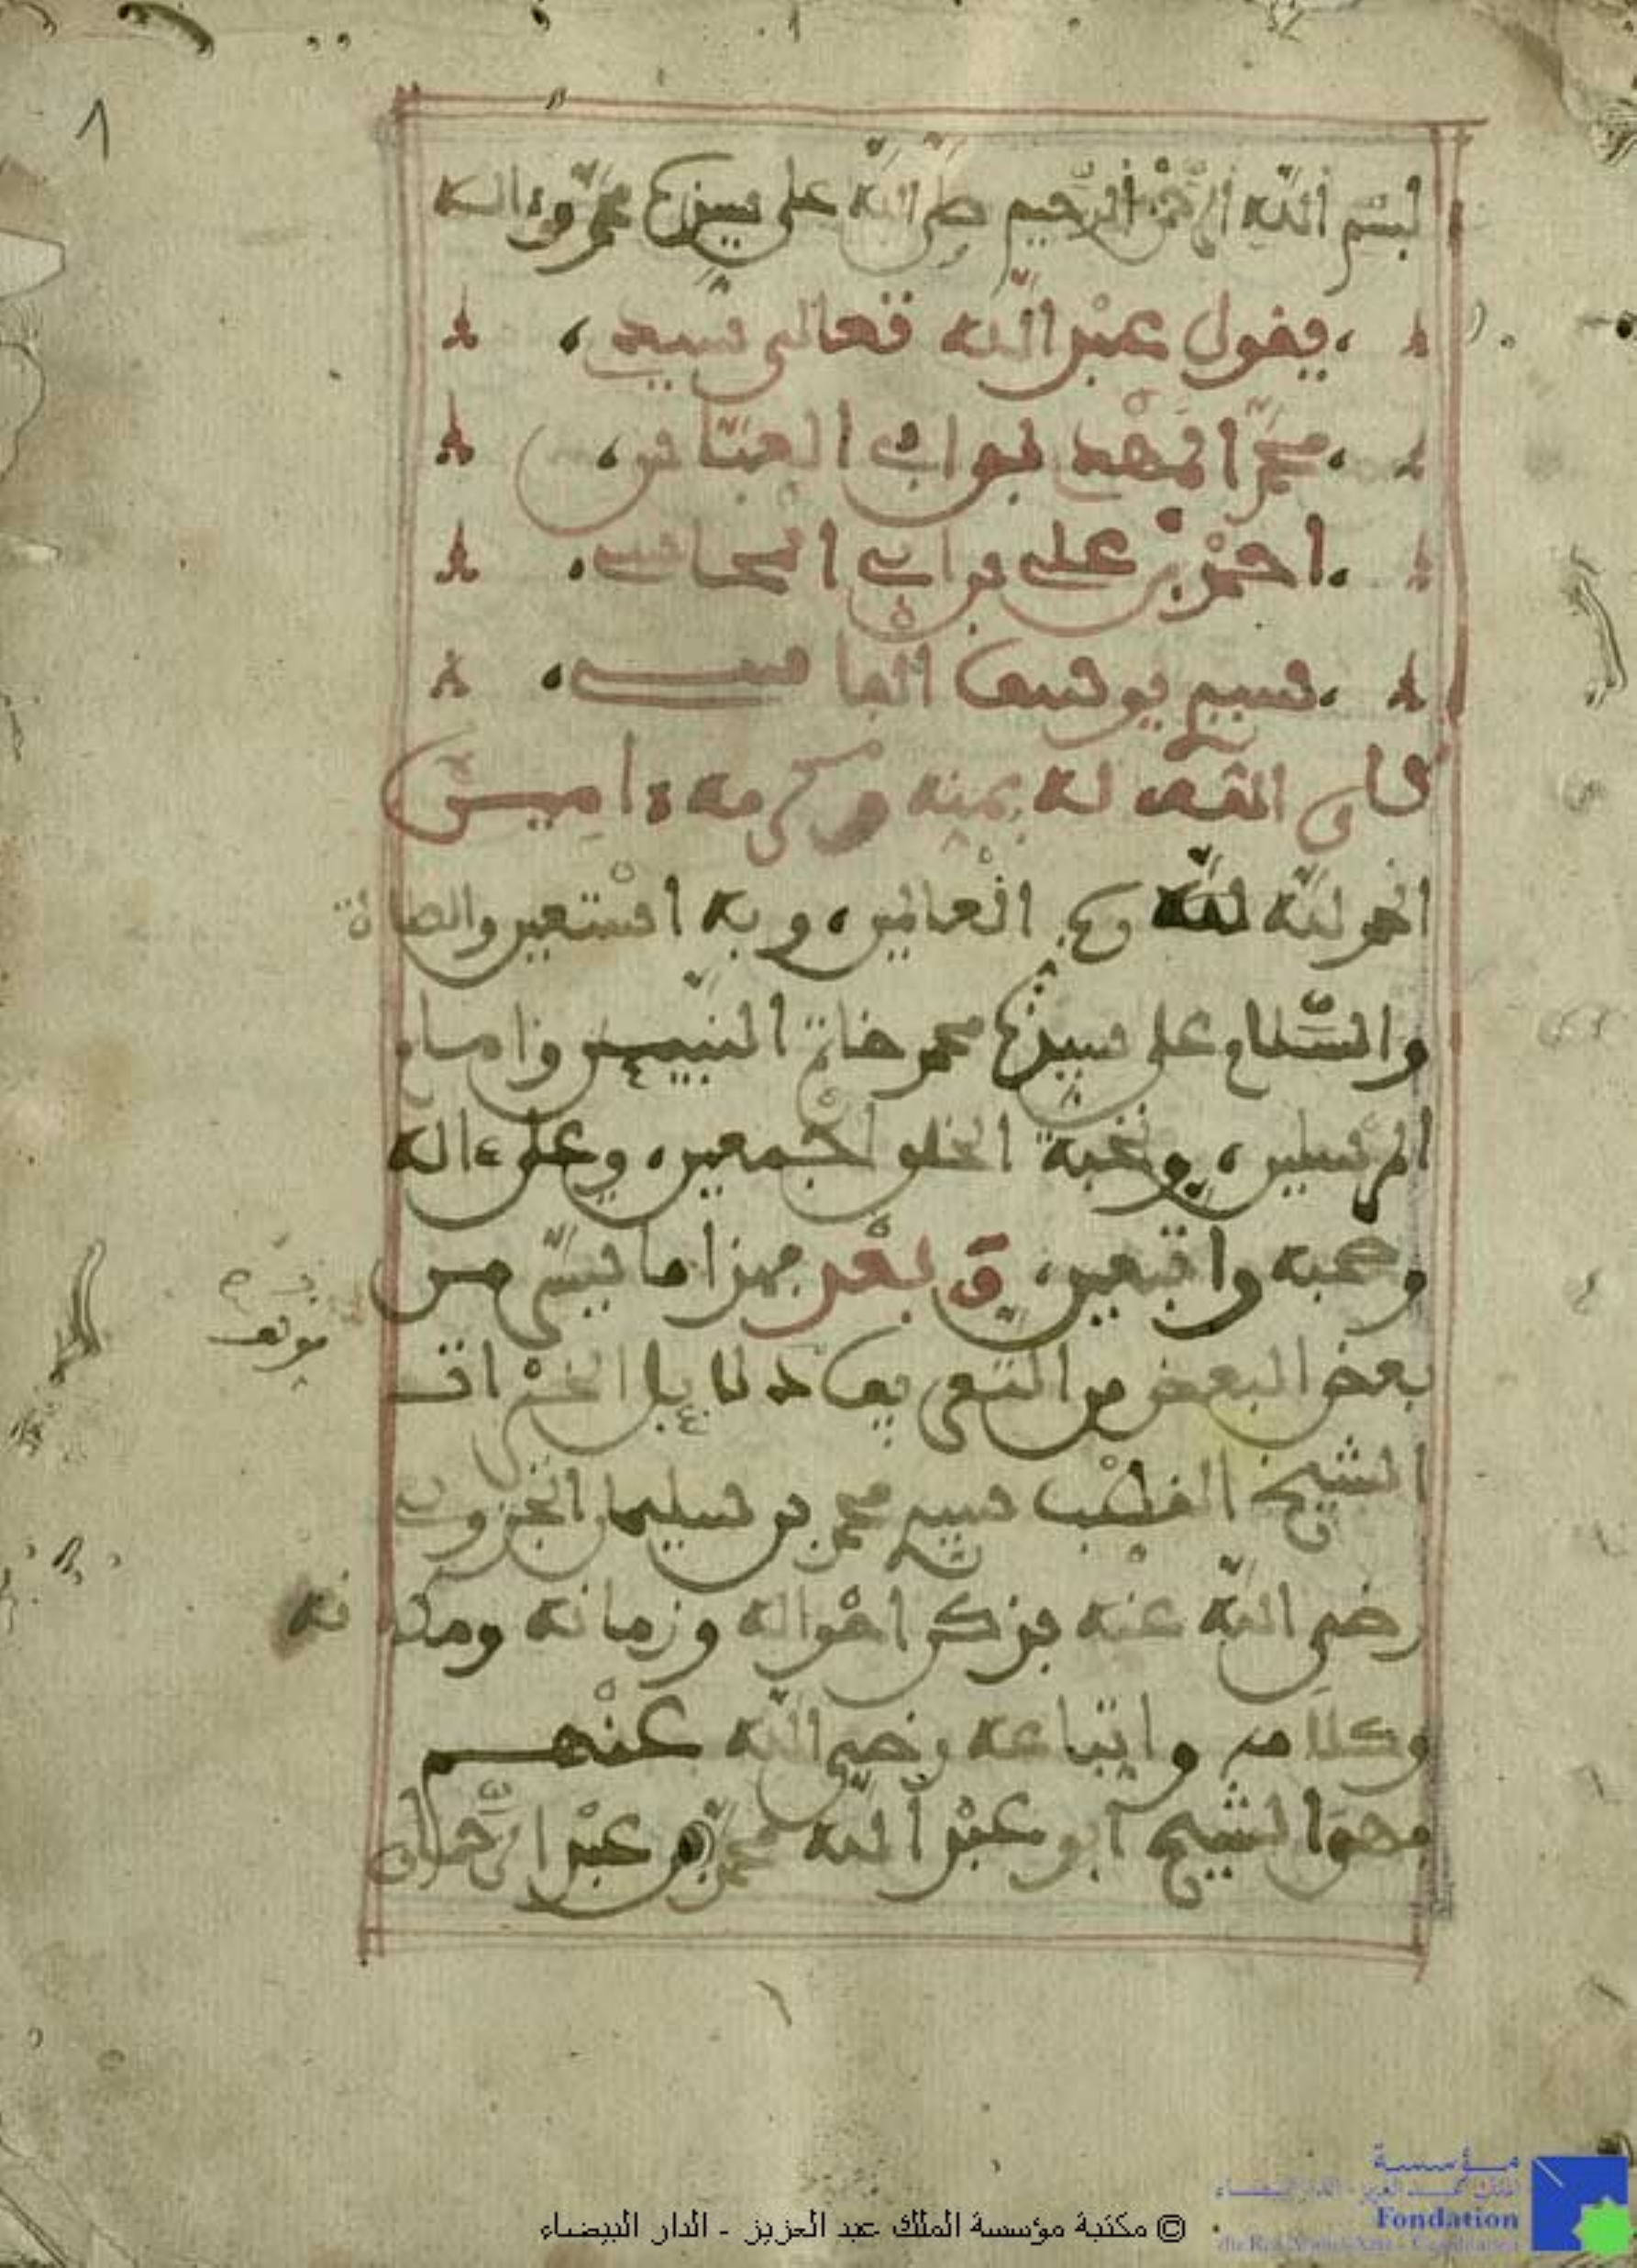 بسم الله الرحمن الرحيم صلى الله على سيدنا محمد وءاله
يقول عبد الله تعالى سيدي
محمد المهدي بن ابي العباس
احمد بن علي بن ابي المحاسن
سيدي يوسف الفاسي
كان الله له بمنه وكرمه ءاميـن
الحمد لله لله رب العالمين وبه استعين والصلاة
والسلام على سيدنا محمد خاتم النبيين وامام
المرسلين ونخبة الخلق اجمعين وعلى ءاله
وصحبه والتابعين وبعد فهذا ما تيسر من
بعض البعض من التعريف بمؤلف دلائل الخيرات
الشيخ القطب سيدي محمد بن سليمان الجزولي
رضي الله عنه بذكر احواله وزمانه ومكانه
وكلامه واتباعه رضي الله عنهم
فهو الشيخ ابو عبد الله محمد بن عبد الرحمان
© مكتبة مؤسسة الملك عبد العزيز - الدار البيضاء
مؤسسة
الملك عبد العزيز - الدار البيضاء
Fondation
du Roi Abdul-Aziz - Casablanca